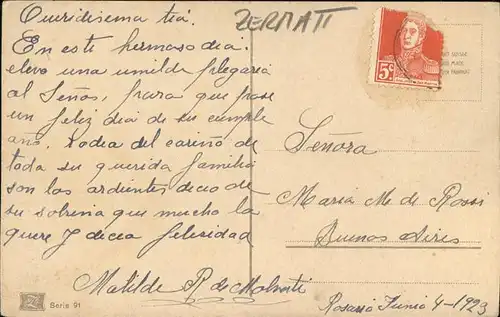 Queridisema tia.
ZERMATT
En esti hermoso dia.
elevo una umilde plegaria
al Señor, para que pase
un feliz dia de su cumple
año. Rodea del cariño de
toda su querida familia
son los ardientes deceo de
su sobrina que mucho la
quere y decea felicidad
Matilde R. de
5c
Señora
Maria M. de Rossi
Buenos Aires
Rosario Junio 4-1923
Serie 91